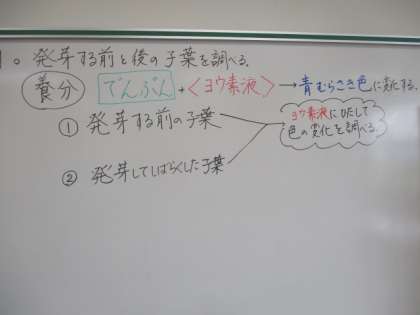 1。発芽する前と後の子葉を調べる。
養分 でんぷん+<ヨウ素液>→青むらさき色に変化する。
① 発芽する前の子葉
ヨウ素液にひたして
色の変化を調べる。
② 発芽してしばらくした子葉